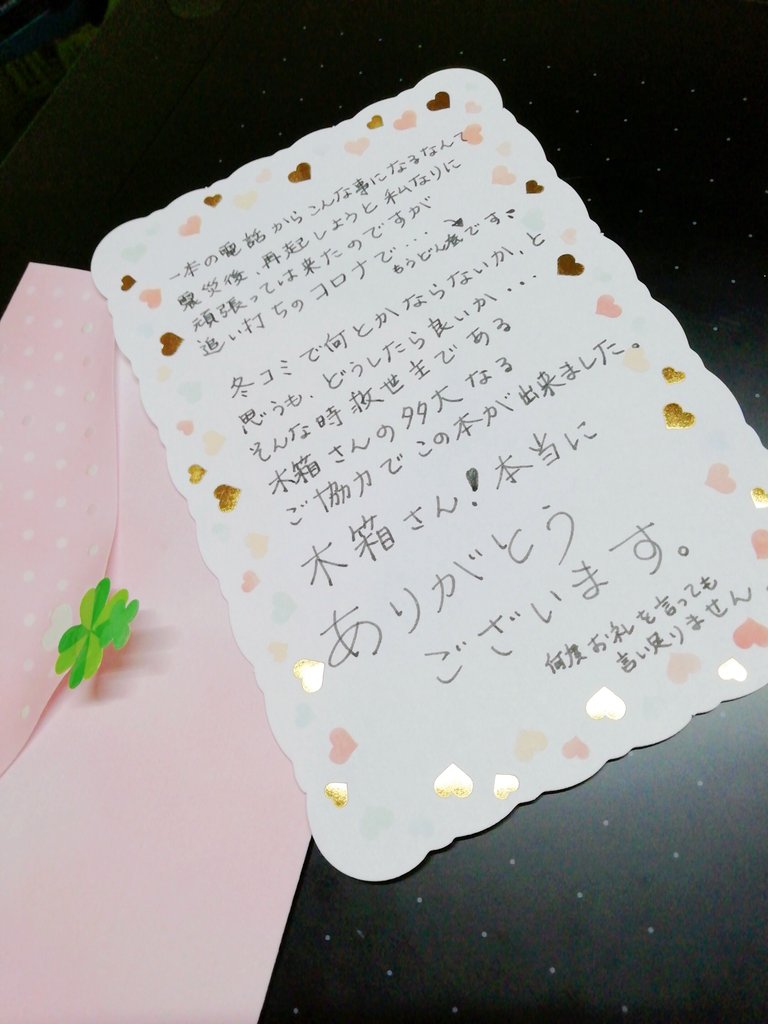 一本の電話からこんな事になるなんて
震災後、再起しようと私なりに
頑張っては来たのですが
追い打ちのコロナで・・・もうどん底です。
冬コミで何とかならないか、と
思うも、どうしたら良いか・・・
そんな時救世主である
木箱さんの多大なる
ご協力でこの本が出来ました。
木箱さん!本当に
ありがとう
ございます。
何度お礼を言っても
言い足りません。